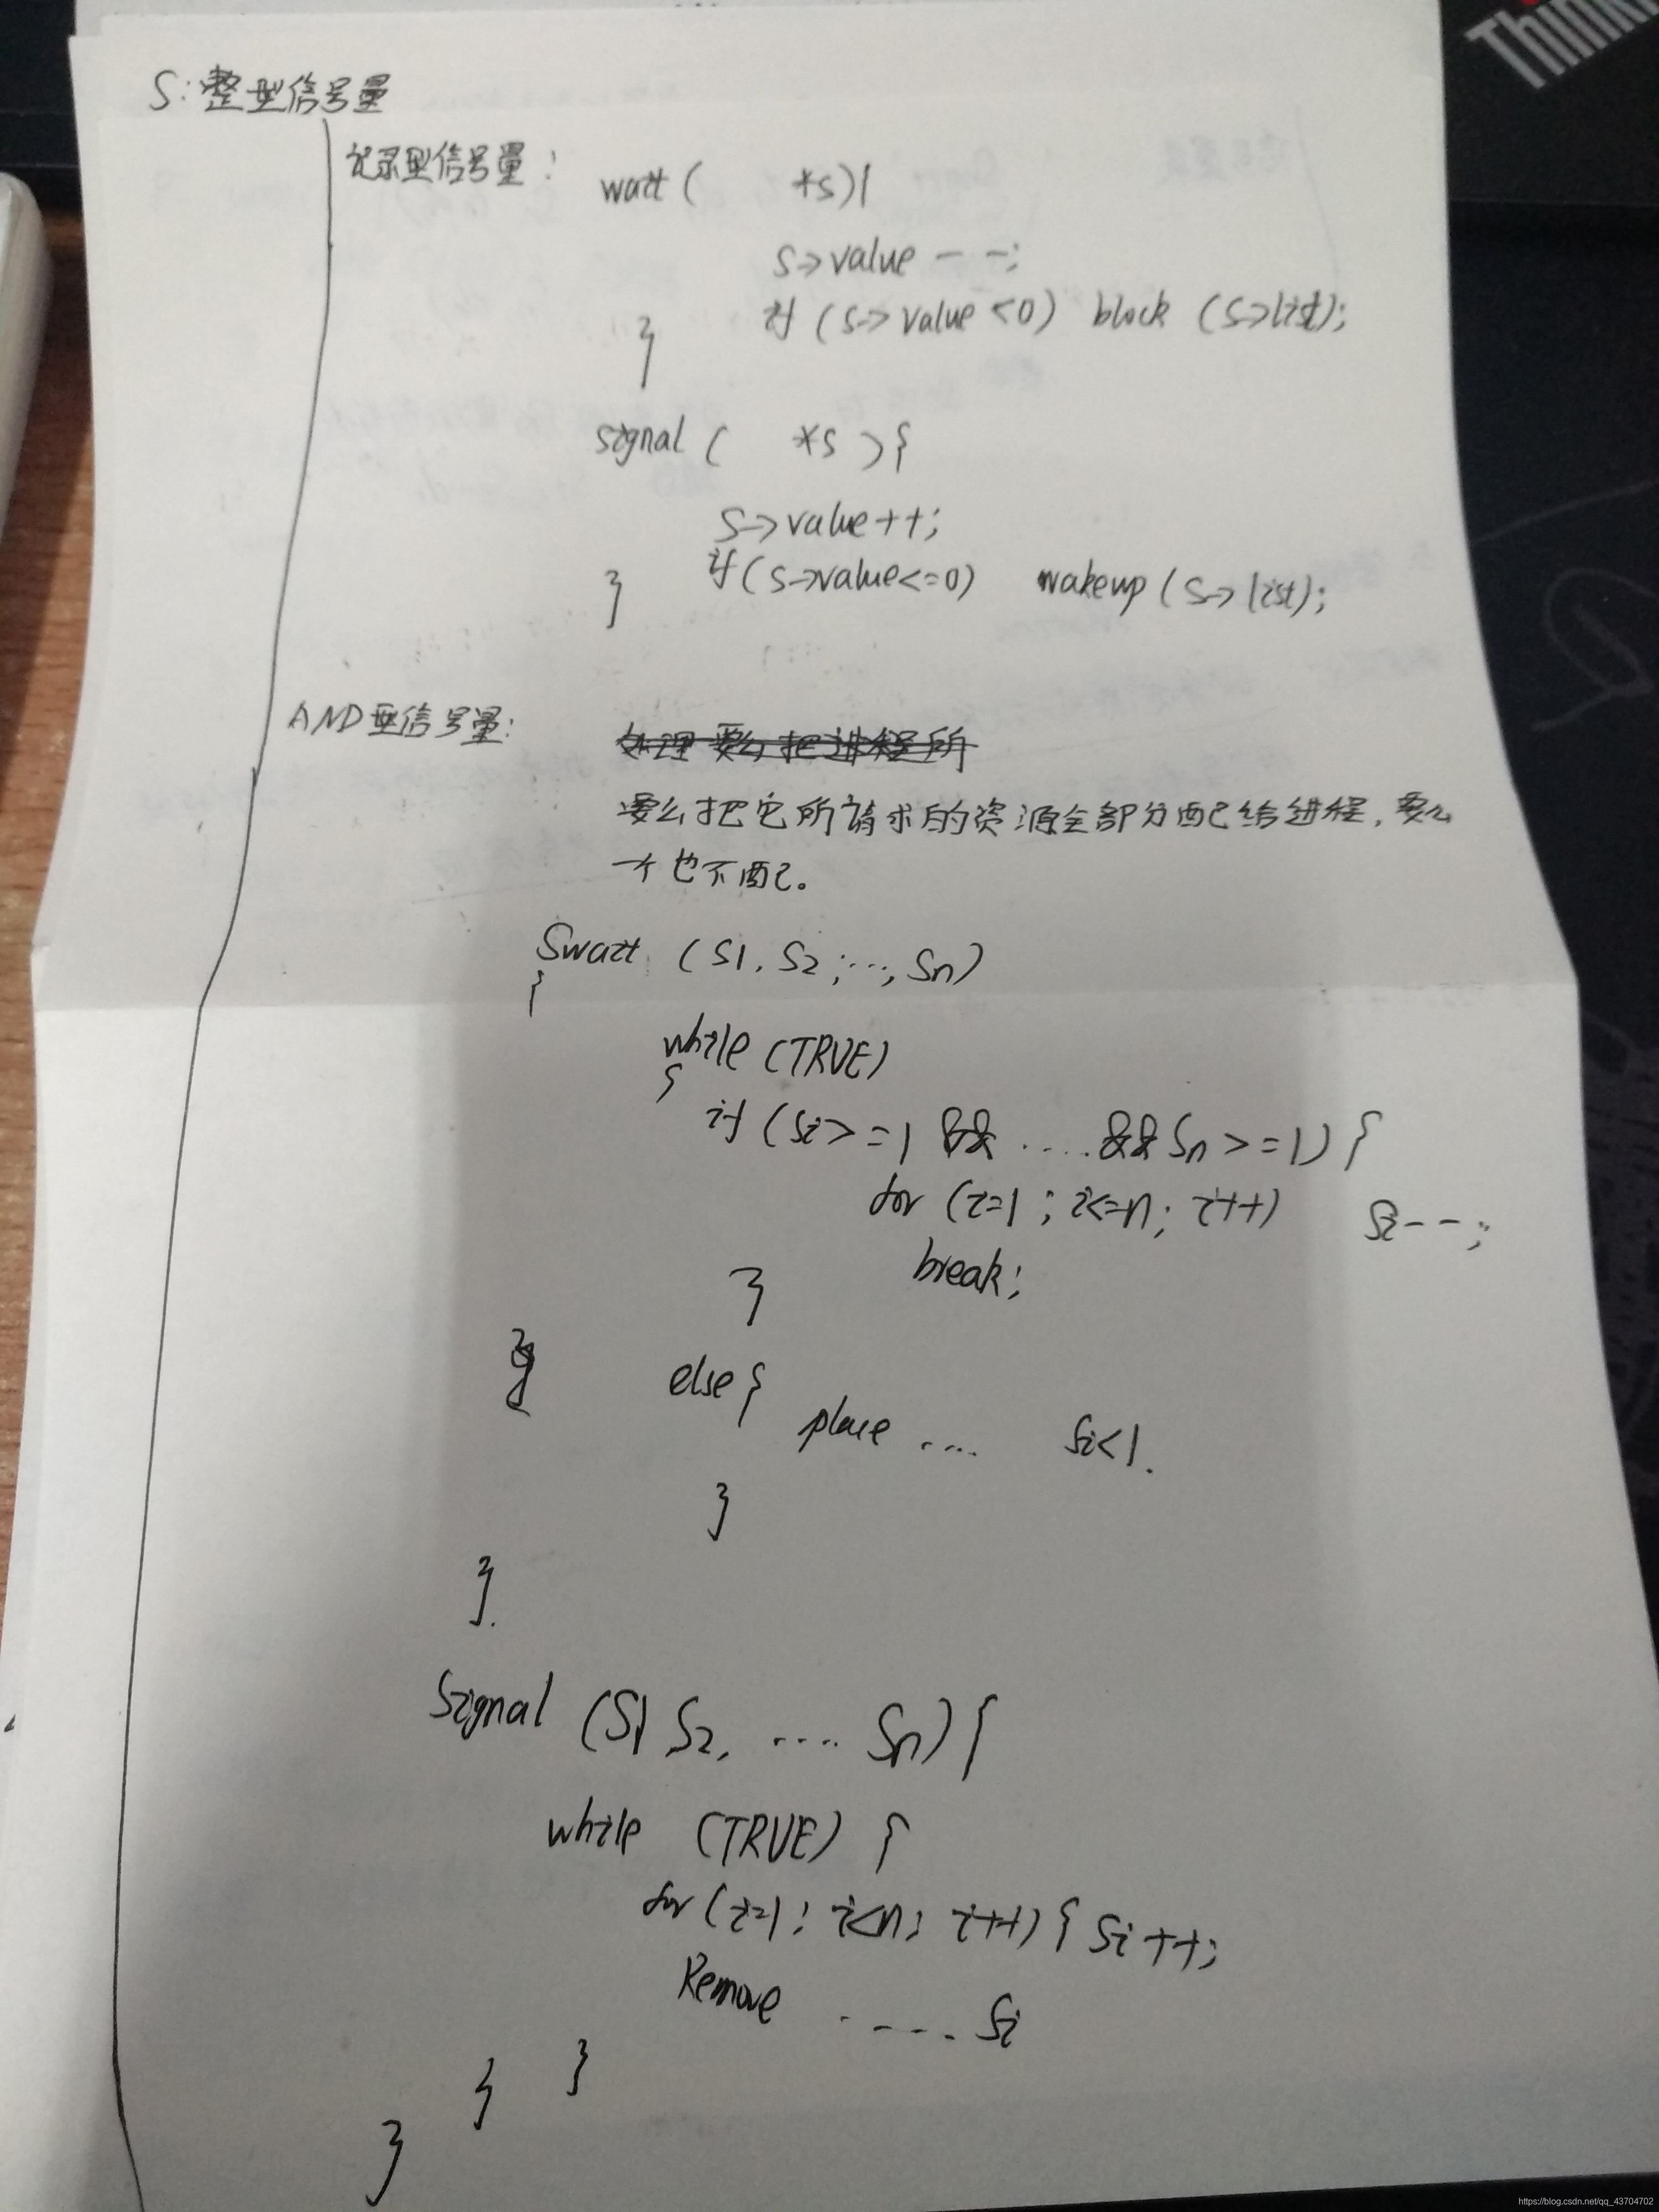 S:整型信号量
记录型信号量:
wait ( *s){
s->value --;
if (s->value <0) block (s->list);
}
signal ( *s ){
s->value++;
if(s->value<=0) wakeup (s->list);
}
AND型信号量:
处理要么把进程所
要么把它所请求的资源全部分配给进程,要么
一个也不配。
Swait (S1, S2, ..., Sn)
{
while (TRUE)
{
if (Si>=1 && .... && Sn >=1) {
for (i=1 ; i<=n; i++) Si--;
break;
}
}
else {
place .... Si<1.
}
}.
Signal (S1 S2, .... Sn) {
while (TRUE) {
for (i=1; i<n; i++) { Si ++;
Remove ..... Si
}
}
}
Think
https://blog.csdn.net/qq_43704702